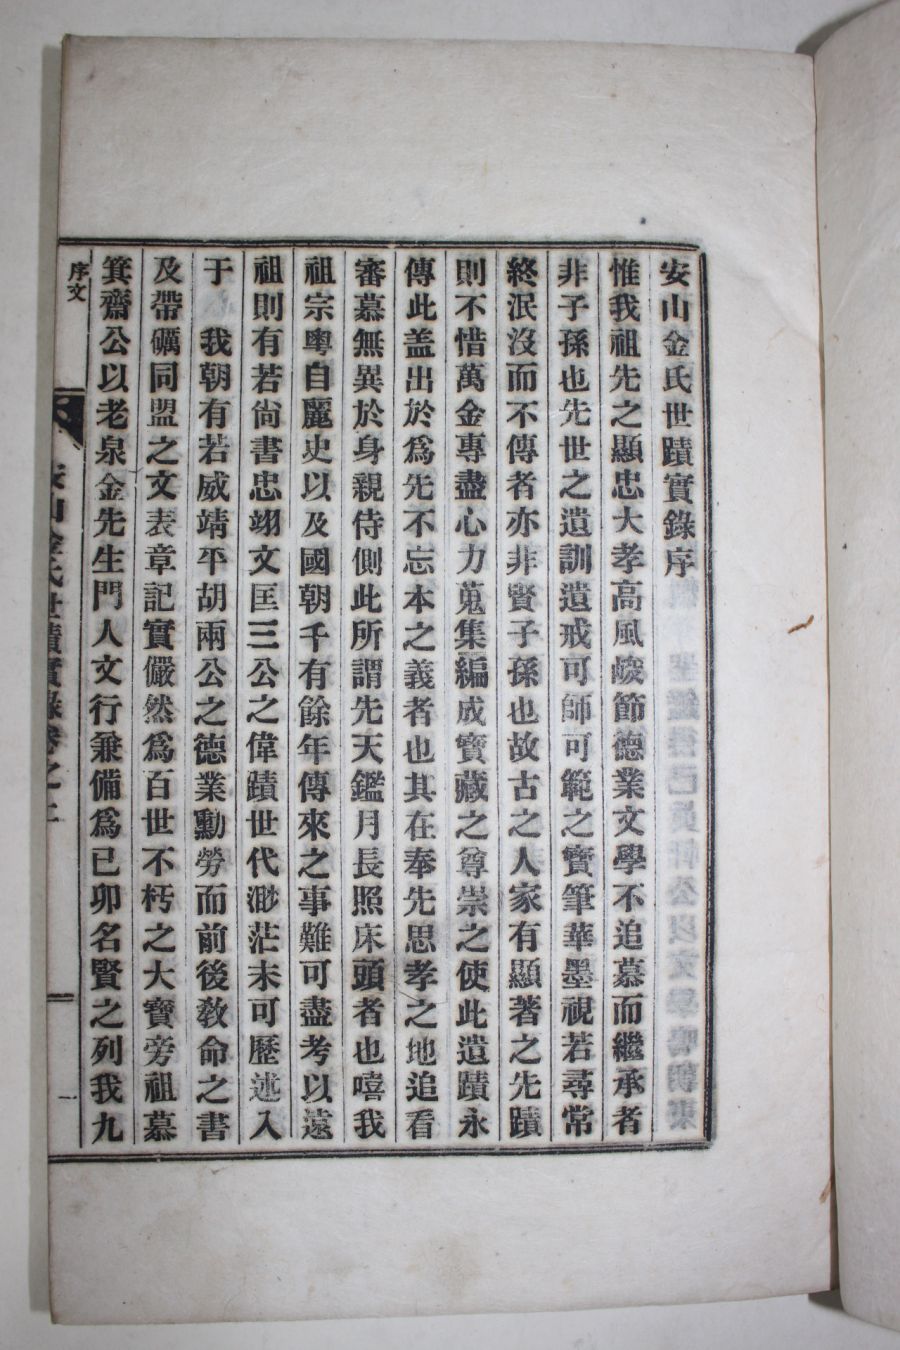 安山金氏世蹟實錄序
惟我祖先之顯忠大孝高風峻節德業文學不追慕而繼承者
非子孫也先世之遺訓遺戒可師可範之寶筆華墨視若尋常
終泯沒而不傳者亦非賢子孫也故古之人家有顯著之先蹟
則不惜萬金專盡心力蒐集編成寶藏之尊崇之使此遺蹟永
傳此盖出於爲先不忘本之義者也其在奉先思孝之地追看
審慕無異於身親侍側此所謂先天鑑月長照床頭者也嘻我
祖宗粤自麗史以及國朝千有餘年傳來之事難可盡考以遠
祖則有若尙書忠翊文匡三公之偉蹟世代渺茫未可歷述入
于 我朝有若威靖平胡兩公之德業勳勞而前後敎命之書
及帶礪同盟之文表章記實儼然爲百世不朽之大寶旁祖慕
箕齋公以老泉金先生門人文行兼備爲已卯名賢之列我九
序文
安山金氏世蹟實錄卷之上
一